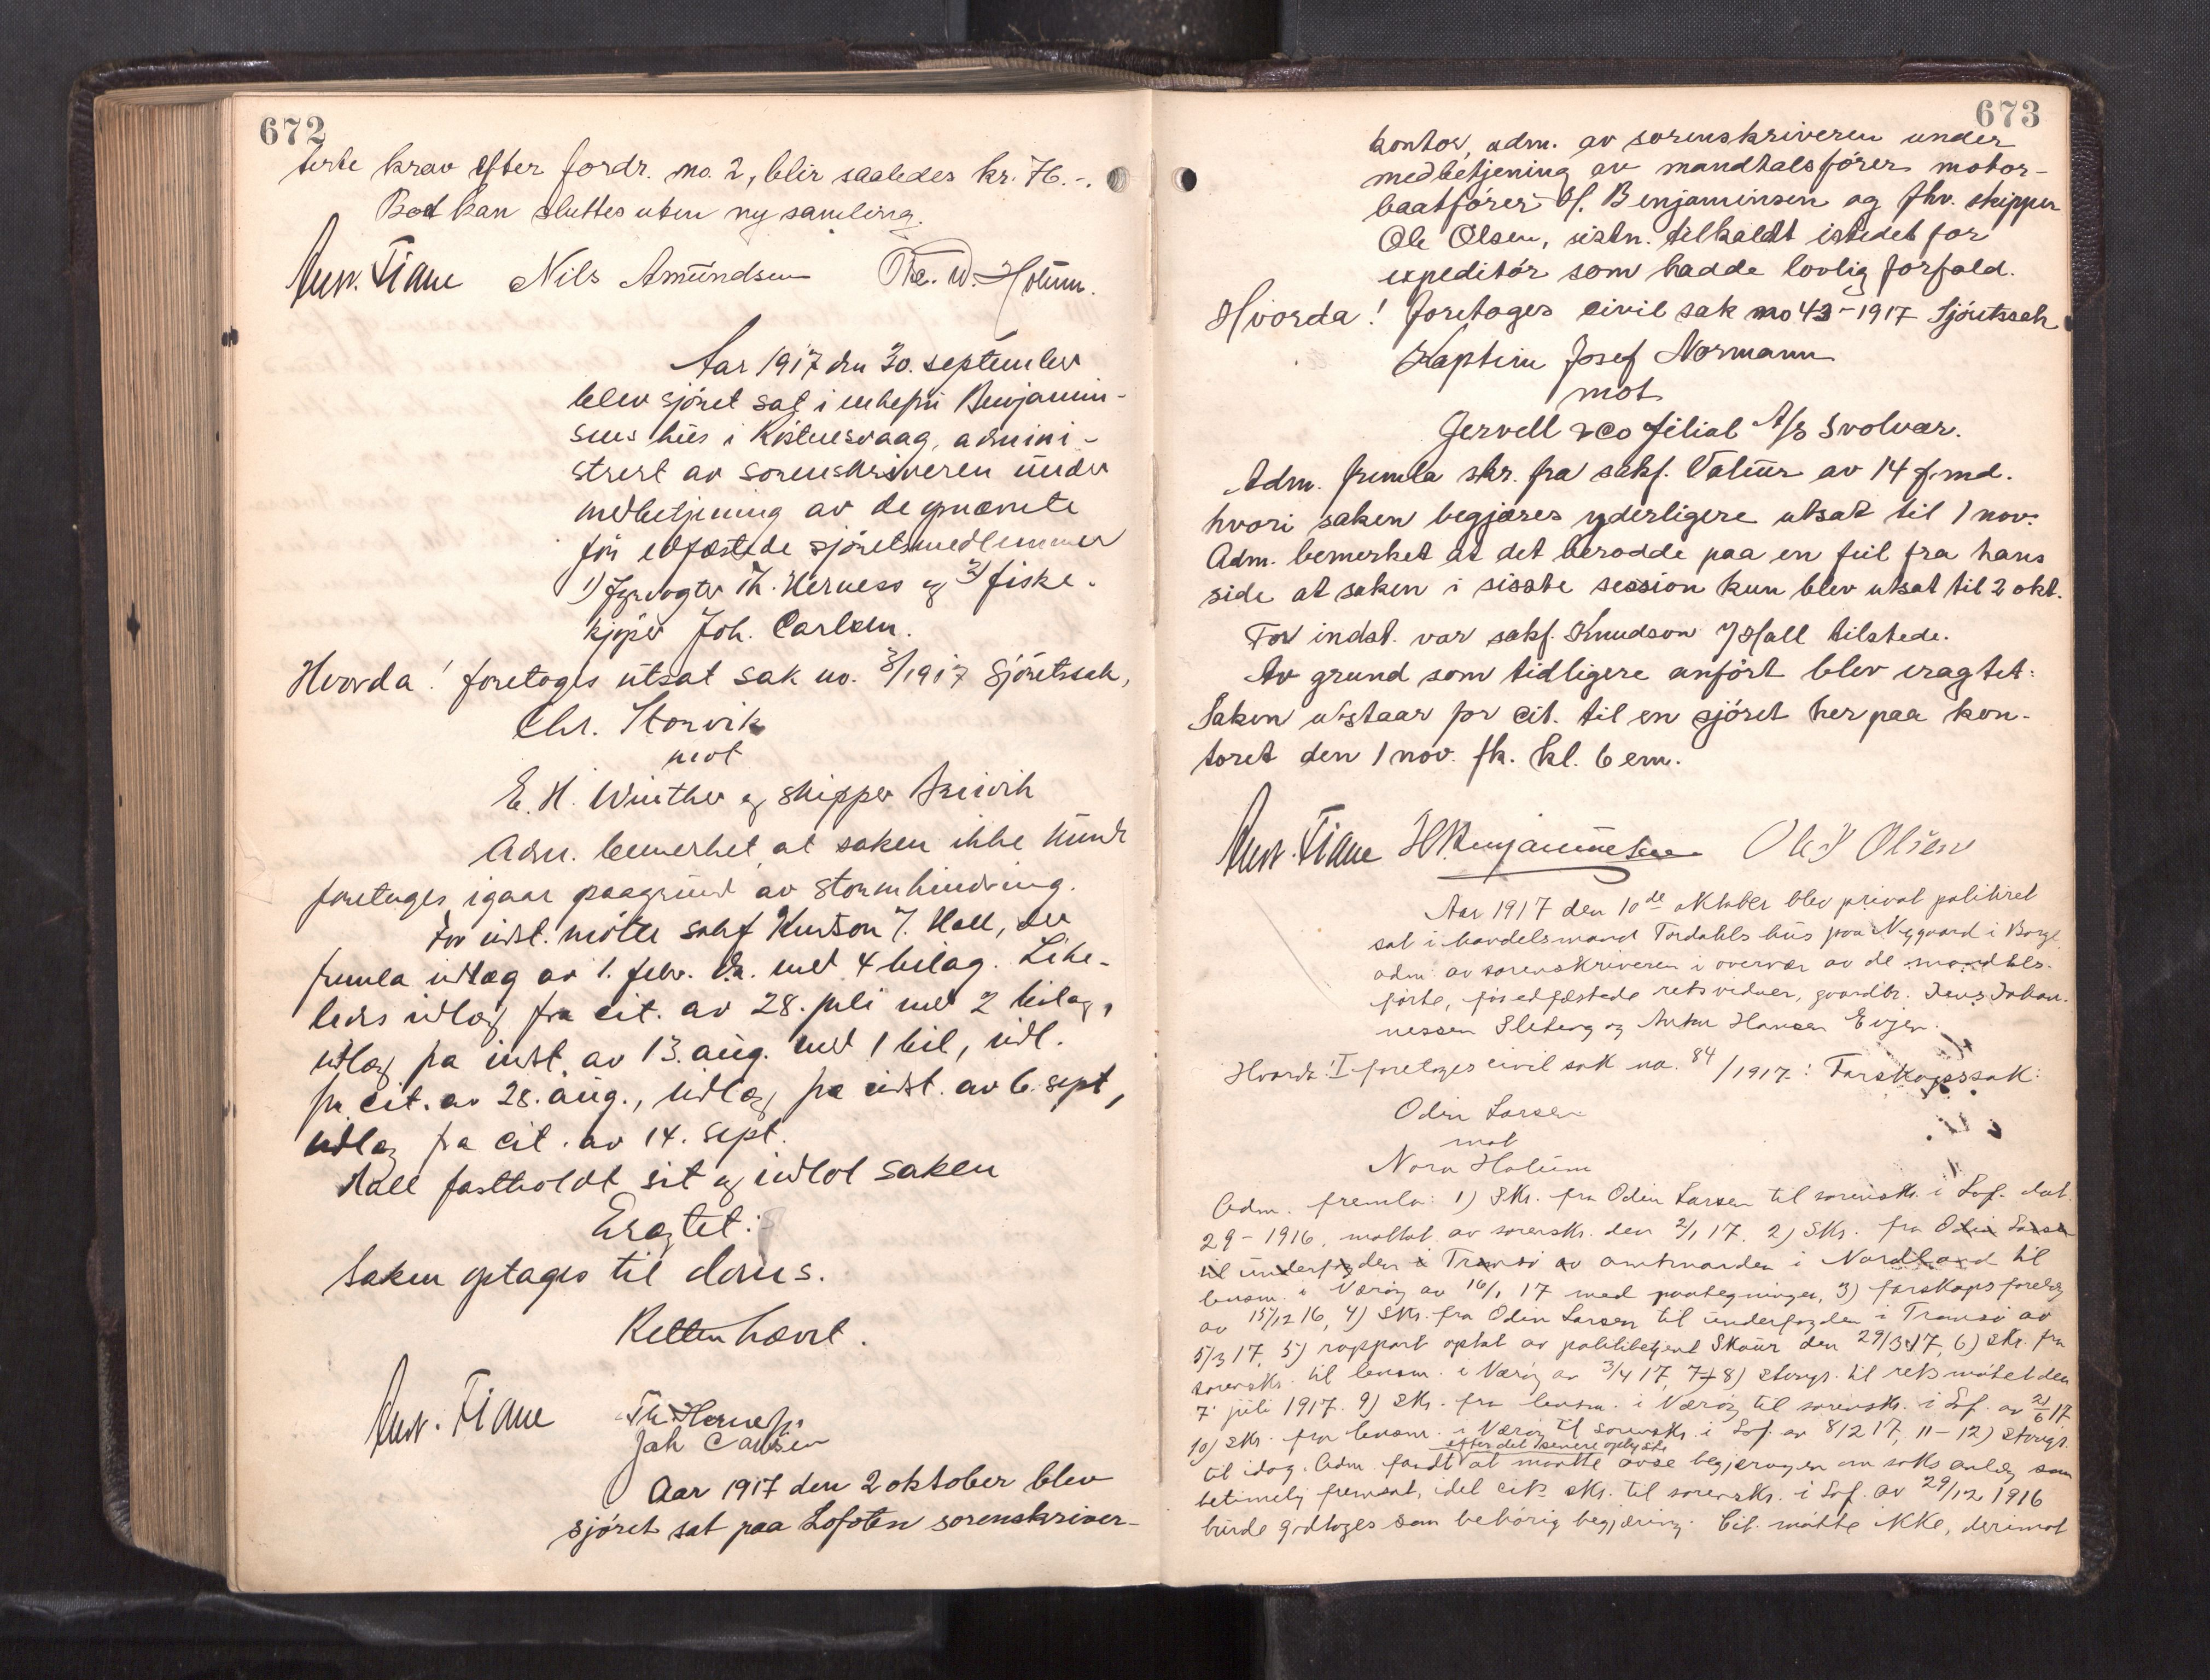 672
terte krav efter fordr. no. 2, blir saaledes kr. 76.-.
Boet kan sluttes uten ny samling.
Anw. Tiane Nils Amundsen W. Holum.
Aar 1917 den 30. september
blev sjöret sat i Benjamin-
sens hus i Kistnesvaag, admini-
strert av sorenskriveren under
medbetjening av de opnævnte
før edfæstede sjöretsmedlemmer
1) fyrvogter Th. Herness og 2) fiske-
kjøper Joh. Carlsen.
Hvorda! foretages utsat sak no. 3/1917 Sjöretssak,
Chr. Storvik
mot
E. H. Winther og skipper
Adm. bemerket at saken ikke kunde
foretages igaar paagrund av stormhindring.
For indst. møtte sakf Knutson 7. Hall, der
fremla indlæg av 1. febr. d.a. med 4 bilag. Like-
ledes indlæg fra cit. av 28. juli med 2 bilag,
indlæg fra indst. av 13. aug. med 1 bil, indl.
fra cit. av 28. aug., indlæg fra indst. av 6. sept,
indlæg fra cit. av 14. sept.
Hall fastholdt sit og indlot saken
Eragtet:
Saken optages til doms.
Retten hævet.
Anw. Tiane Th. Herness
Joh Carlsen
Aar 1917 den 2 oktober blev
sjöret sat paa Lofoten sorenskriver-
673
kontor, adm. av sorenskriveren under
medbetjening av mandtalsförer motor-
baatförer H. Benjaminsen og fhv. skipper
Ole Olsen, sistn. tilkaldt istedet for
expeditör som hadde lovlig forfald.
Hvorda! foretages civil sak no 43-1917 Sjöretssak
Kaptein Josef Normann
mot
Jervell & Co filial A/S Svolvær.
Adm. fremla skr. fra sakf. Vatur av 14 f. md.
hvori saken begjæres yderligere utsat til 1 nov.
Adm. bemerket at det berodde paa en feil fra hans
side at saken i sisste session kun blev utsat til 2 okt.
For indst. var sakf. Knudson 7 Hall tilstede.
Av grund som tidligere anfört blev eragtet:
Saken utstaar for cit. til en sjöret her paa kon-
toret den 1 nov. fk. kl. 6 em.
Anw. Tiane H Benjaminsen Ole Olsen
Aar 1917 den 10de oktober blev privat politiret
sat i handelsmand Tordahls hus paa Nygaard i Borge
adm. av sorenskriveren i overvær av de mandtals-
førte, før edfæstede retsvidner, gaardbr. Jens Johan-
nessen Sleberg og Anton Hansen Evjen.
Hvorda! I foretages civil sak no. 84/1917: Farskapssak:
Odin Larsen
mot
Nora Holum
Adm. fremla: 1) Skr. fra Odin Larsen til sorenskr. i Lof. dat.
29 - 1916, mottat av sorenskr. den 2/1 17. 2) Skr. fra Odin Larsen
til underfogden i Tromsö av amtmanden i Nordland til
lensm. i Værøy av 16/1 17 med paategninger, 3) farskapsforelæg
av 15/12 16, 4) Skr. fra Odin Larsen til underfogden i Tromsö av
5/3 17, 5) rapport optat av politibetjent Skaur den 29/3 17, 6) Skr. fra
sorenskr. til lensm. i Værøy av 3/4 17, 7+8) Stevngr. til retsmøtet den
7 juli 1917. 9) Skr. fra lensm. i Værøy til sorenskr. i Lof. av 21/6 17
10) Skr. fra lensm. i Værøy til sorenskr. i Lof. av 8/12 17, 11-12) Stevngr.
efter det senere oplyste
til idag. Adm. fandt at maatte avse begjæringen om saks anlæg som
betimelig fremsat, idet cit's skr. til sorenskr. i Lof. av 29/12 1916
burde godtages som behörig begjæring. Cit. møtte ikke, derimot